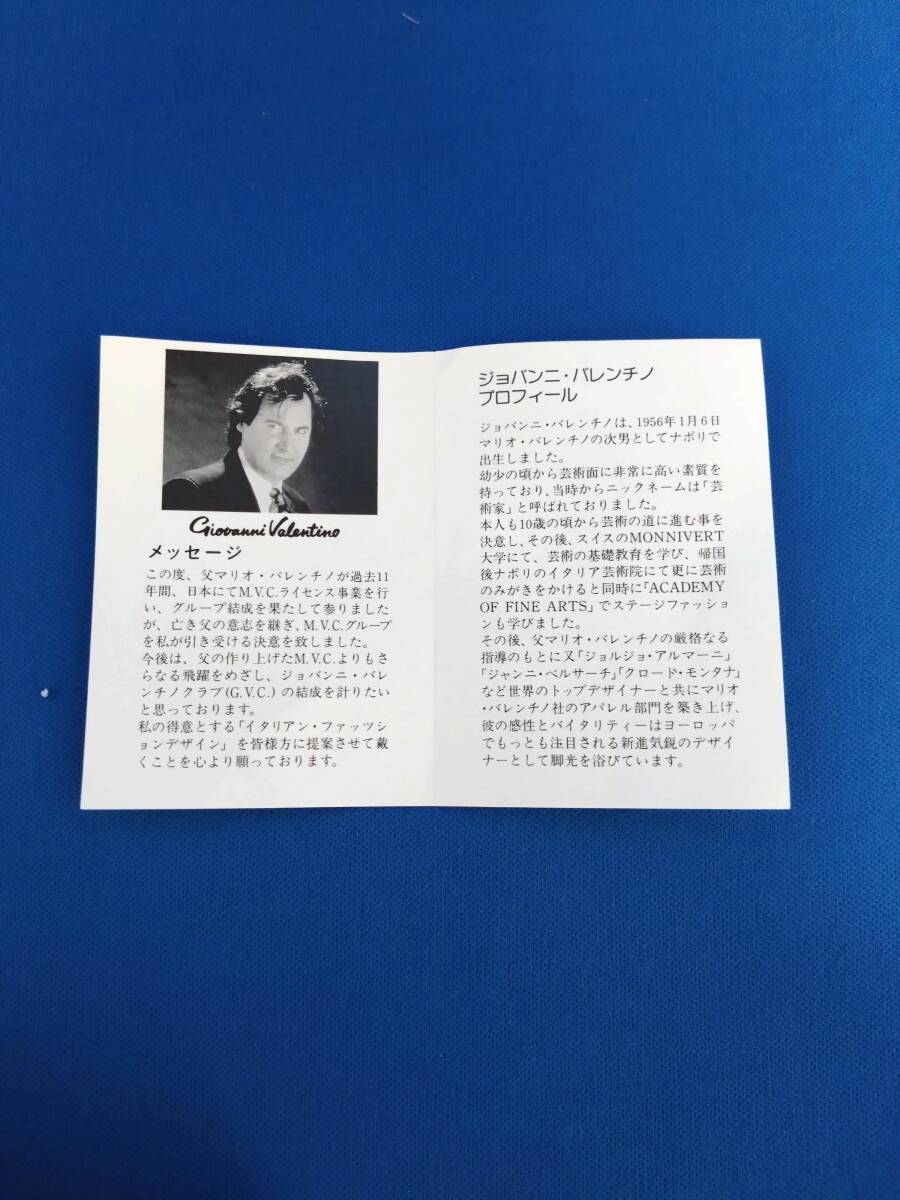 Giovanni Valentino
メッセージ
この度、父マリオ・バレンチノが過去11
年間、日本にてM.V.C.ライセンス事業を行
い、グループ結成を果たして参りました
が、亡き父の意志を継ぎ、M.V.C.グループ
を私が引き受ける決意を致しました。
今後は、父の作り上げたM.V.C.よりもさ
らなる飛躍をめざし、ジョバンニ・バレ
ンチノクラブ(G.V.C.)の結成を計りたい
と思っております。
私の得意とする「イタリアン・ファッツシ
ョンデザイン」を皆様方に提案させて戴
くことを心より願っております。
ジョバンニ・バレンチノ
プロフィール
ジョバンニ・バレンチノは、1956年1月6日
マリオ・バレンチノの次男としてナポリで
出生しました。
幼少の頃から芸術面に非常に高い素質を
持っており、当時からニックネームは「芸
術家」と呼ばれておりました。
本人も10歳の頃から芸術の道に進む事を
決意し、その後、スイスのMONNIVERT
大学にて、芸術の基礎教育を学び、帰国
後ナポリのイタリア芸術院にて更に芸術
のみがきをかけると同時に「ACADEMY
OF FINE ARTS」でステージファッショ
ンも学びました。
その後、父マリオ・バレンチノの厳格なる
指導のもとに又「ジョルジョ・アルマーニ」
「ジャンニ・ベルサーチ」「クロード・モンタナ」
など世界のトップデザイナーと共にマリオ
・バレンチノ社のアパレル部門を築き上げ、
彼の感性とバイタリティーはヨーロッパ
でもっとも注目される新進気鋭のデザイ
ナーとして脚光を浴びています。